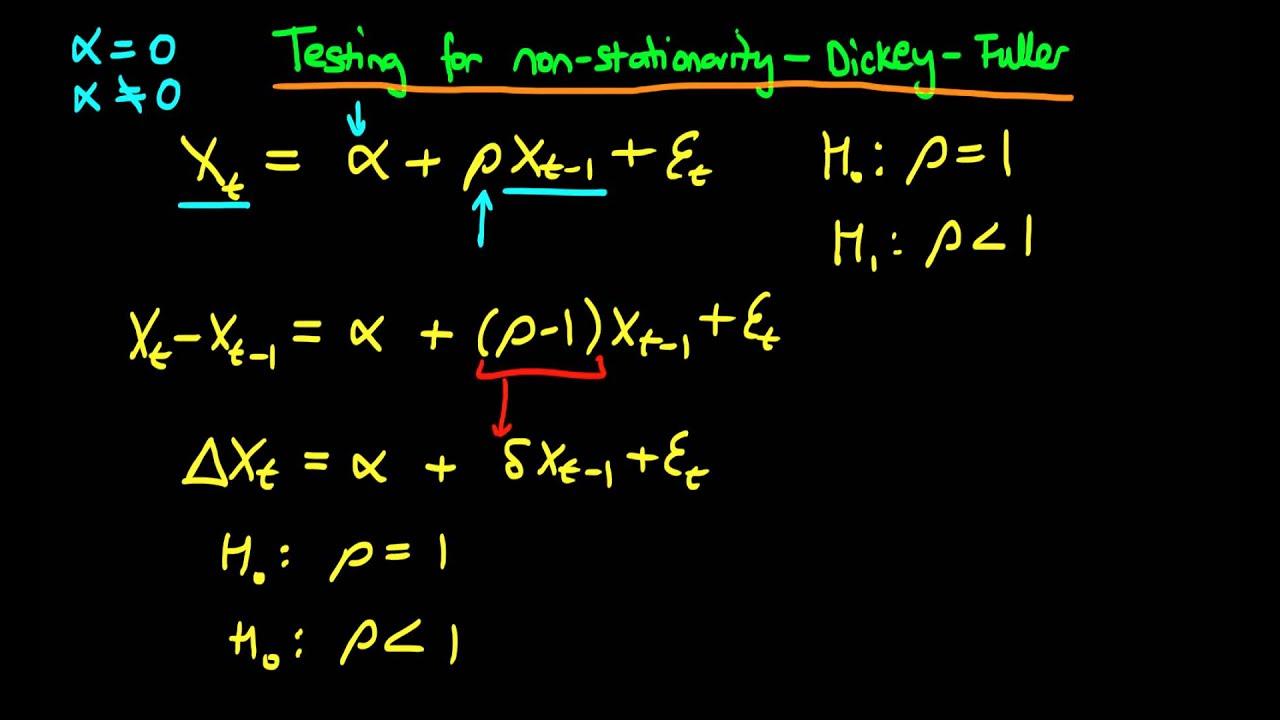 α = 0
α ≠ 0
Testing for non-stationarity - Dickey-Fuller
Xₜ = α + ρXₜ₋₁ + Ɛₜ
H₀: ρ = 1
H₁: ρ < 1
Xₜ - Xₜ₋₁ = α + (ρ-1)Xₜ₋₁ + Ɛₜ
ΔXₜ = α + δXₜ₋₁ + Ɛₜ
H₀: ρ = 1
H₀: ρ < 1